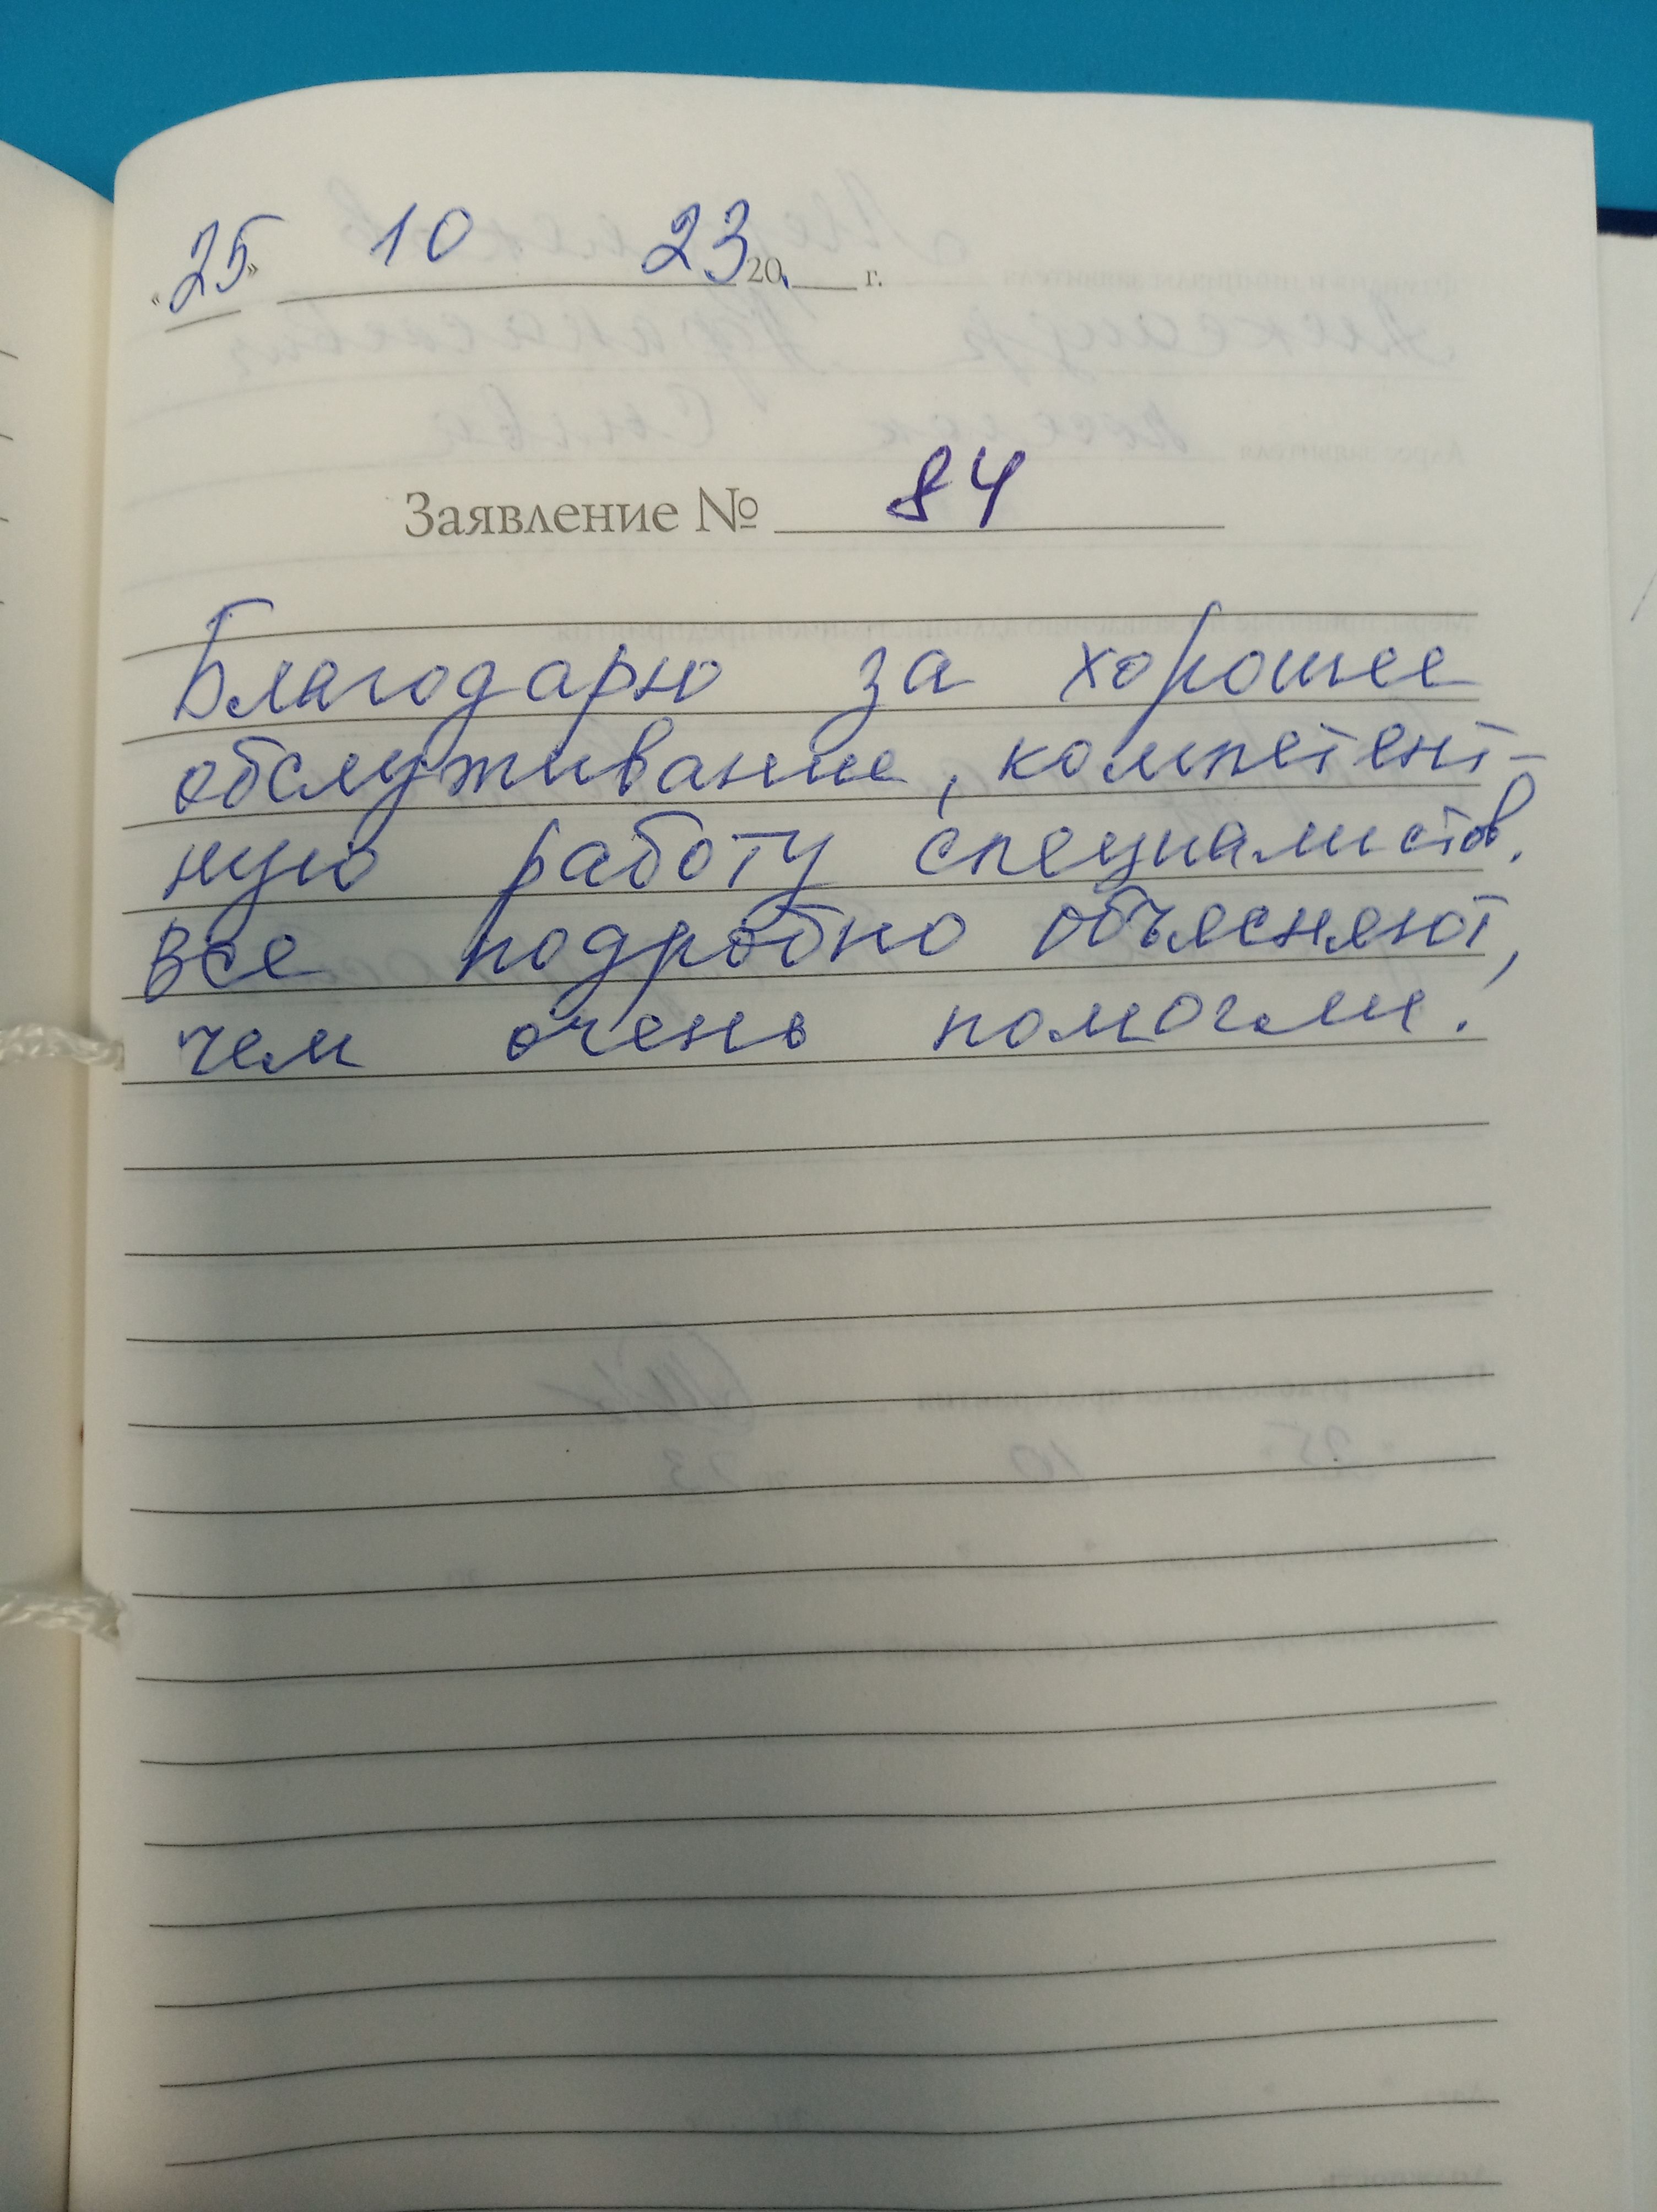 «25» 10 23 20 г.
Заявление № 84
Благодарю за хорошее
обслуживание, компетент-
ную работу специалистов.
все подробно объясняют,
чем очень помогли.